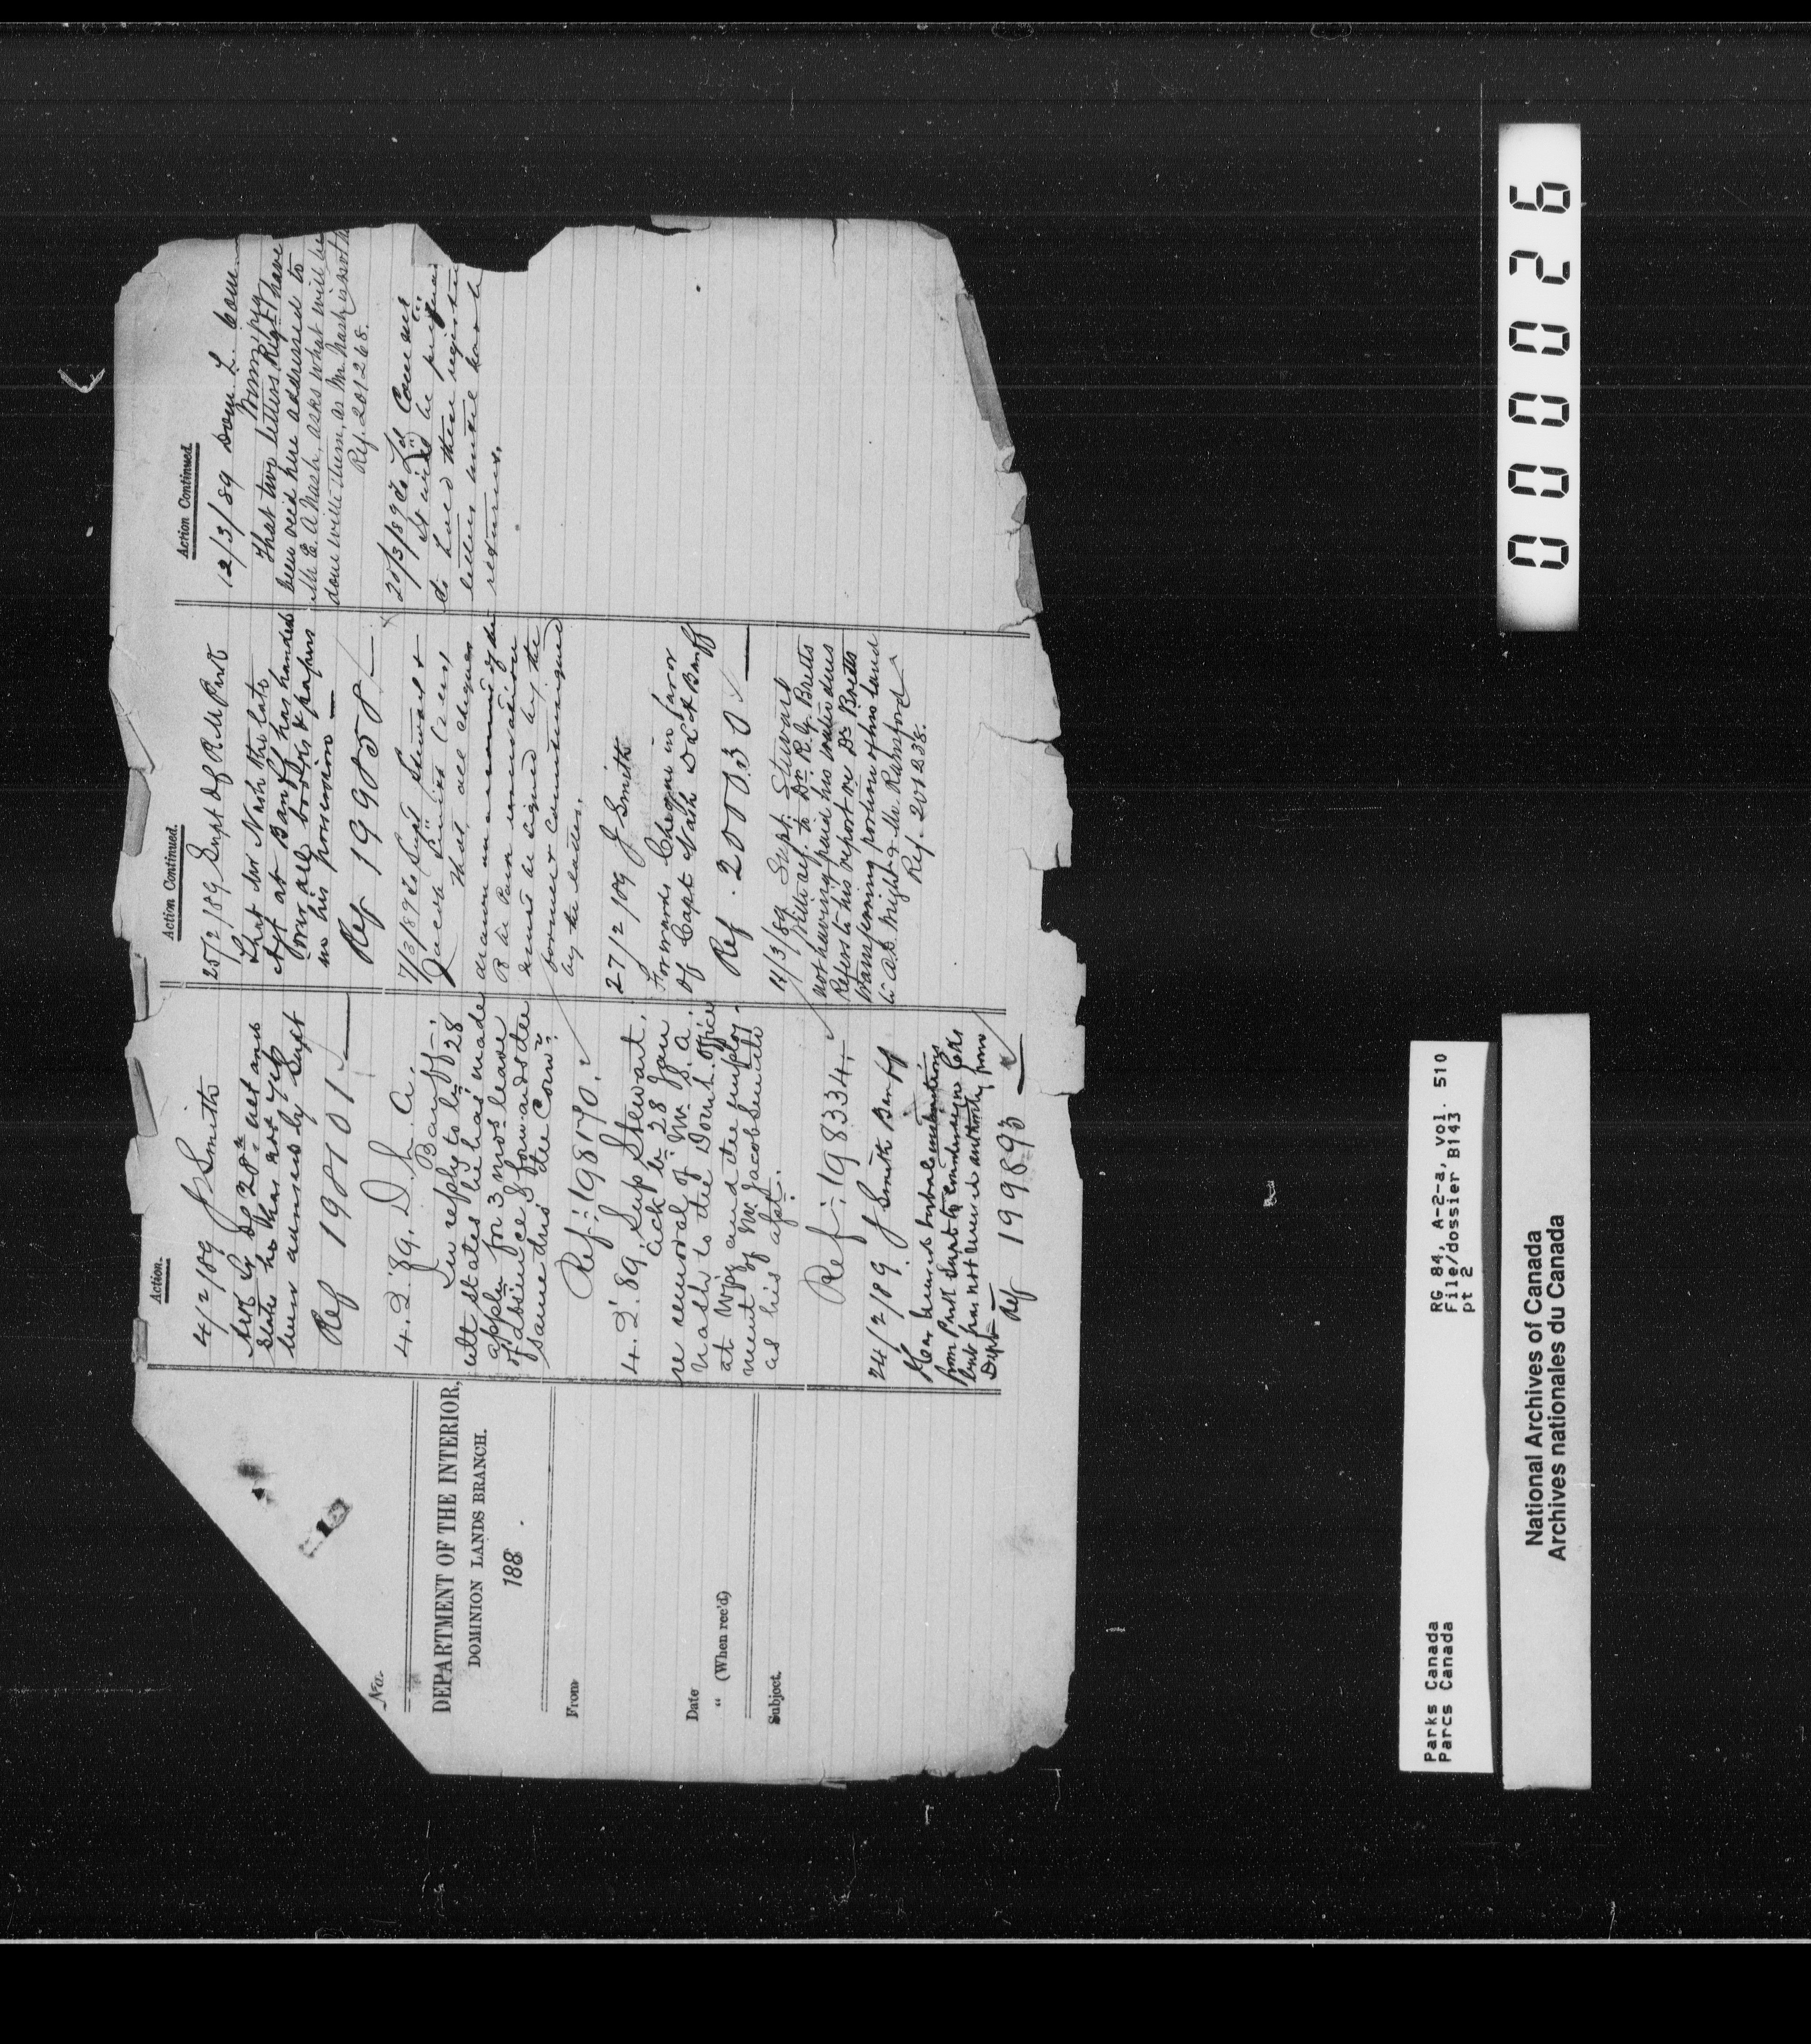 No.
DEPARTMENT OF THE INTERIOR,
DOMINION LANDS BRANCH.
188 .
From
Date
" (When rec'd)
Subject.
Action.
4/2/89 J Smith
Ack Lr of 28th ult and
states he has not yet
been advised by Supt
Ref 198101
4.2.89. D. L. A.
Banff;
In reply to lr 28
ult states he has made
appln for 3 mos leave
of absence & forwards the
same thro' the Comr.
Ref: 198170.
4.2.89. Sup Stewart.
Ack lr 28 Jan
re removal of Mr. E. A.
Nash to the Domn L. Office
at Wpg and the employ-
ment of Mr. Jacob Smith
as his asst.
Ref: 198334.
24/2/89. J Smith Banff
Has received verbal
from Park Supt to endorse
but has not received authority from
Dept
Ref 199893
Action Continued.
25/2/89 Supt of R M Park
That Mr Nash the late
Agt at Banff has handed
over all books & papers
in his possession
Ref 199858
7/3/89 To Supt Stewart &
Jacob Smith
That all cheques
drawn on account of the
Park
must be signed by the
former & countersigned
by the latter.
27/2/89 J Smith
Forwards Cheque in favor
of Capt Nash D L A Banff
Ref. 200030
11/3/89 Supt. Stewart
With ref. to Dr. R. G. Bretts
not having paid his water dues
Refers to his report re Dr Bretts
transferring portion of his land
to A.D. Wright & Mr Rainsford
Ref. 201238.
Action Continued.
12/3/89 Dom L. Com
Winnipeg
That two letters Reg'd have
been recd here addressed to
Mr. E. A Nash, asks what will be
done with them, as Mr. Nash is not
Ref. 201268.
20/3/89 To Ld Com
It will be
to hold these registered
letters until Nash
returns.
000026
RG 84, A-2-a, vol. 510
File/dossier B143
pt 2
Parks Canada
Parcs Canada
National Archives of Canada
Archives nationales du Canada